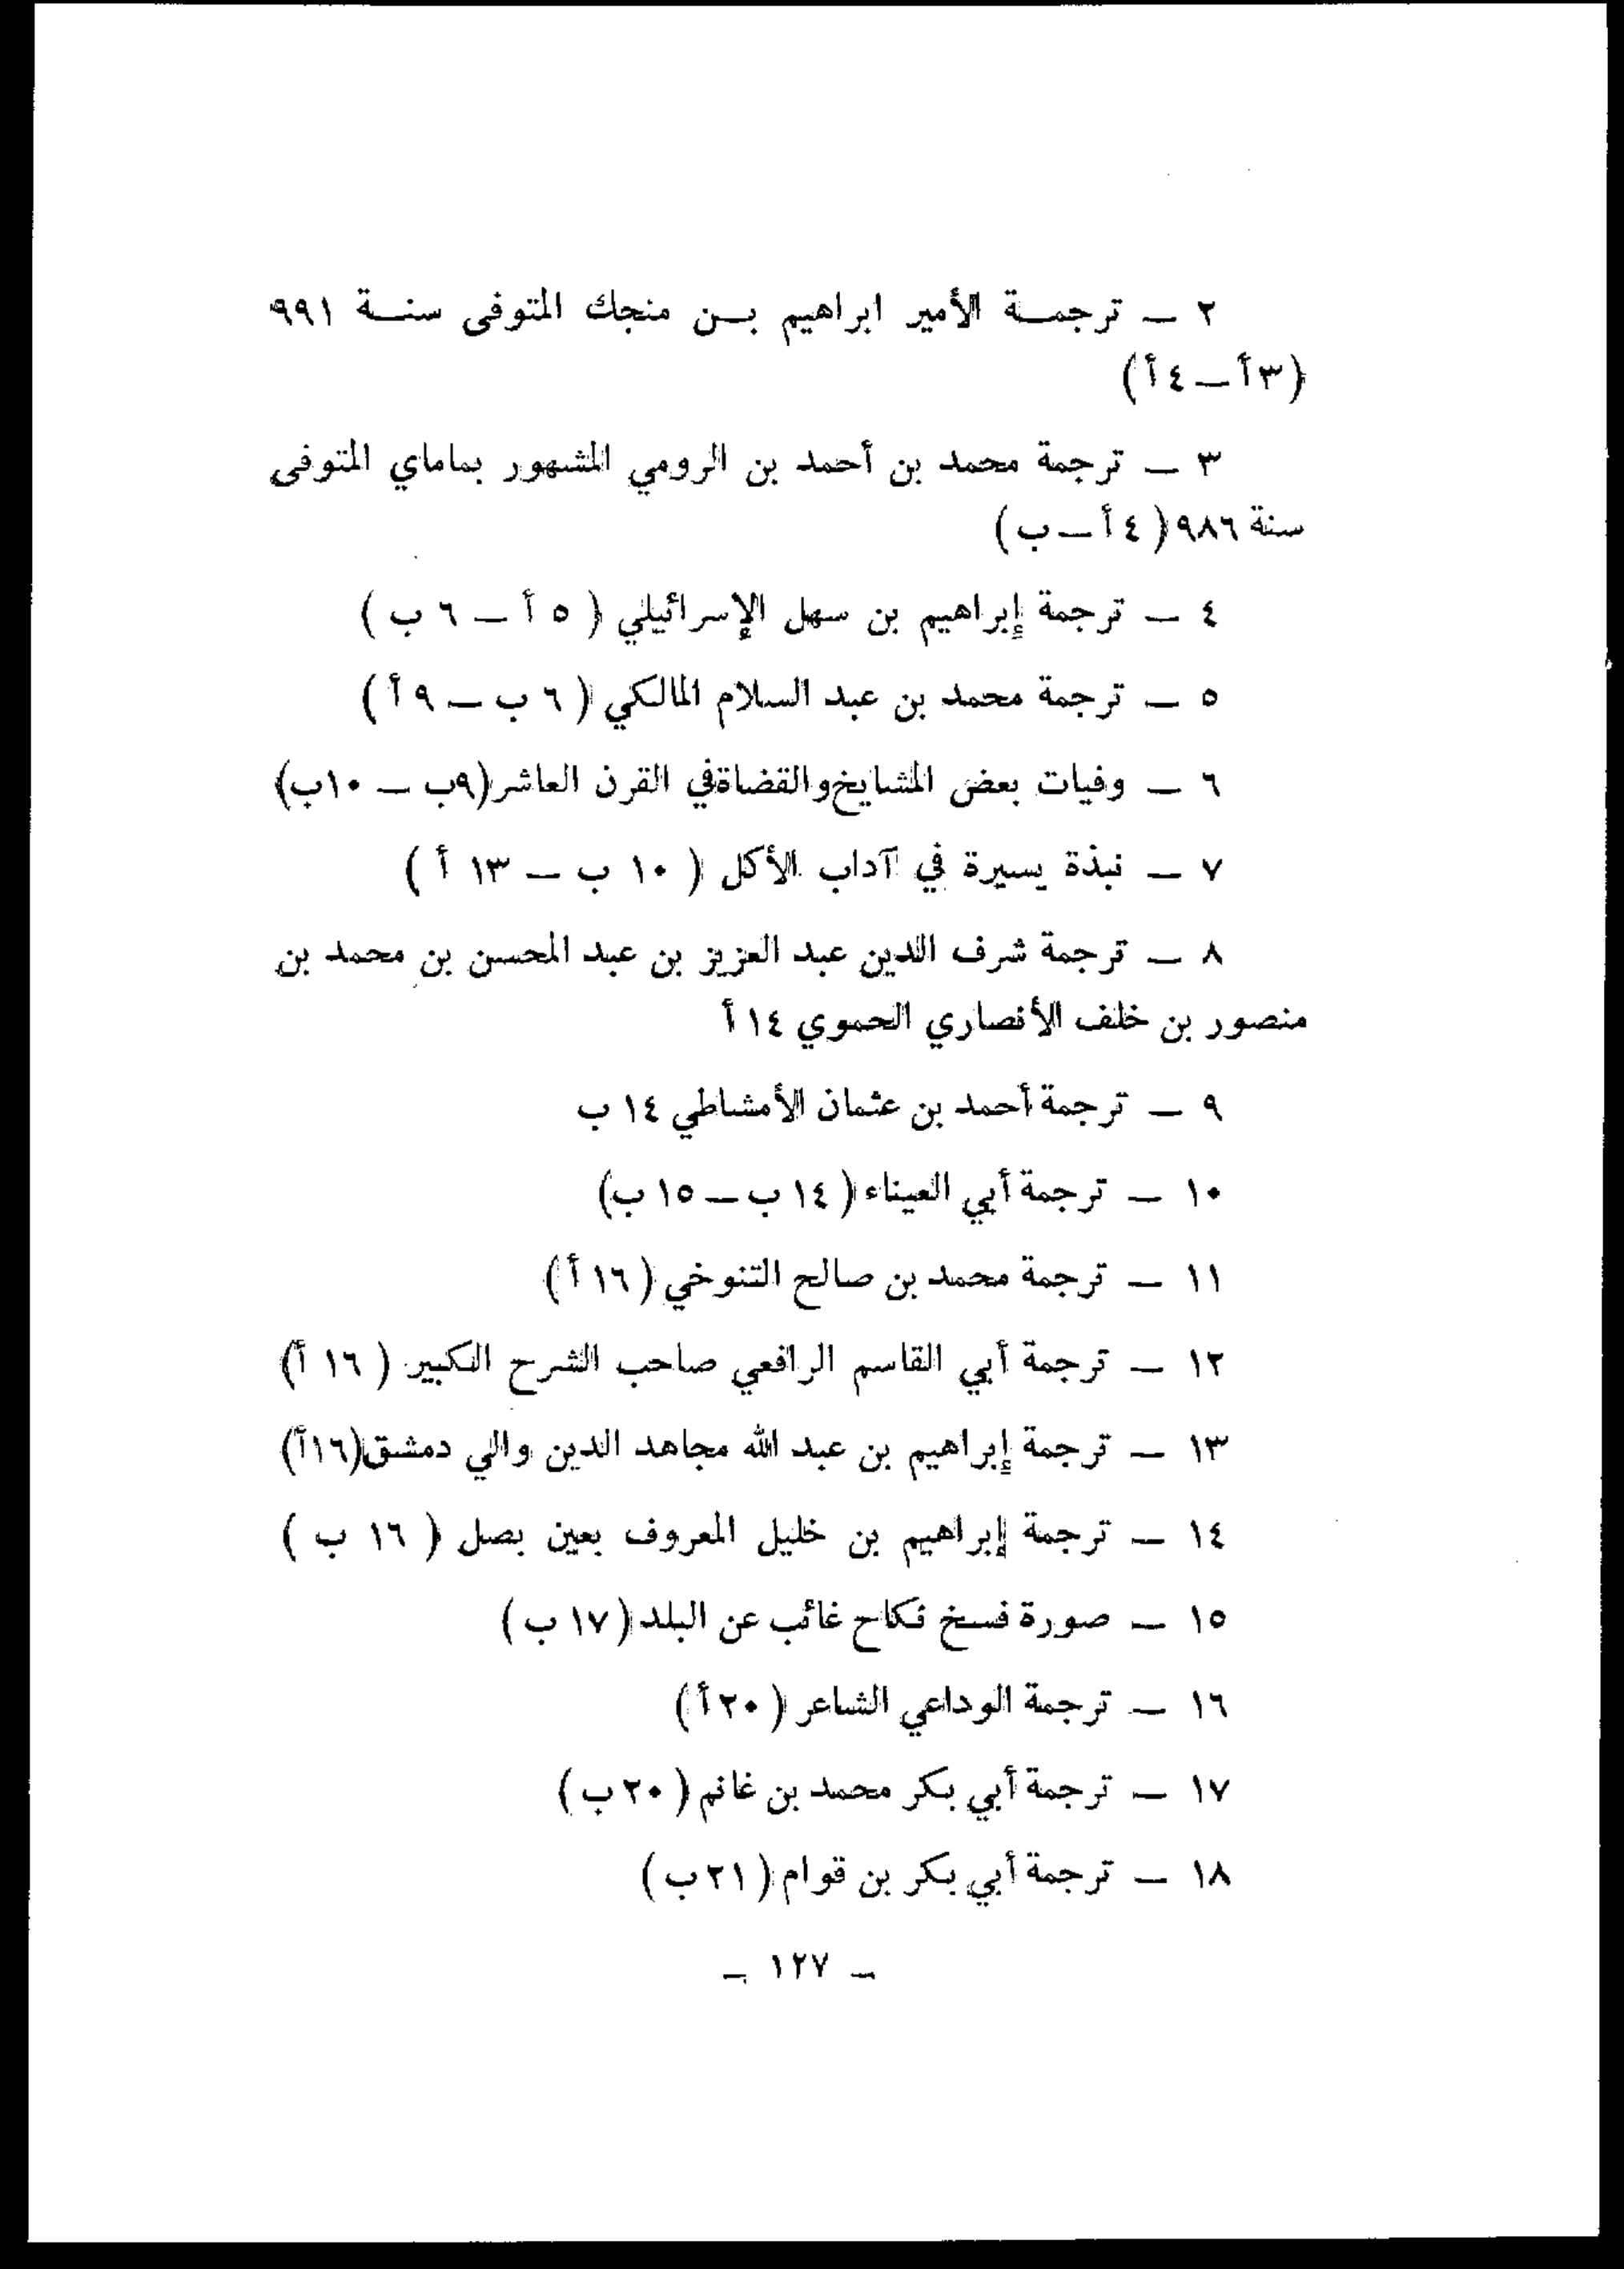 ٢ — ترجمة الأمير ابراهيم بن منجك المتوفى سنة ٩٩١
(٣أ — ٤أ)
٣ — ترجمة محمد بن أحمد بن الرومي المشهور بماماي المتوفى
سنة ٩٨٦ (٤أ — ب)
٤ — ترجمة إبراهيم بن سهل الإسرائيلي (٥ أ — ٦ ب)
٥ — ترجمة محمد بن عبد السلام المالكي (٦ ب — ٩أ)
٦ — وفيات بعض المشايخ والقضاة في القرن العاشر (٩ب — ١٠ب)
٧ — نبذة يسيرة في آداب الأكل (١٠ ب — ١٣ أ)
٨ — ترجمة شرف الدين عبد العزيز بن عبد المحسن بن محمد بن
منصور بن خلف الأنصاري الحموي ١٤أ
٩ — ترجمة أحمد بن عثمان الأمشاطي ١٤ ب
١٠ — ترجمة أبي العيناء (١٤ ب — ١٥ ب)
١١ — ترجمة محمد بن صالح التنوخي (١٦أ)
١٢ — ترجمة أبي القاسم الرافعي صاحب الشرح الكبير (١٦ أ)
١٣ — ترجمة إبراهيم بن عبد الله مجاهد الدين والي دمشق (١٦أ)
١٤ — ترجمة إبراهيم بن خليل المعروف بعين بصل (١٦ ب)
١٥ — صورة فسخ نكاح غائب عن البلد (١٧ ب)
١٦ — ترجمة الوداعي الشاعر (٢٠أ)
١٧ — ترجمة أبي بكر محمد بن غانم (٢٠ب)
١٨ — ترجمة أبي بكر بن قوام (٢١ب)
— ١٢٧ —